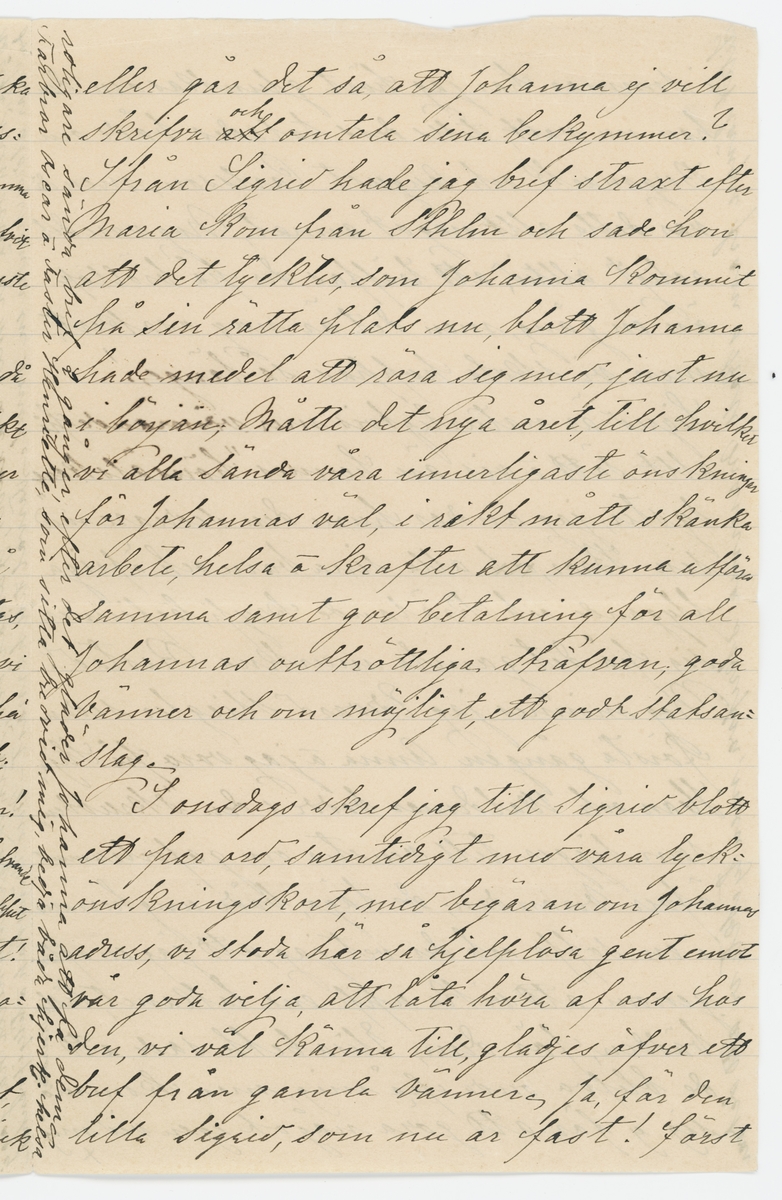 eller går det så, att Johanna ej vill
skrifva och omtala sina bekymmer?
Ifrån Sigrid hade jag bref straxt efter
Maria kom från Sthlm och sade hon
att det tycktes, som Johanna kommit
på sin rätta plats nu, blott Johanna
hade medel att röra sig med, just nu
i början; Måtte det nya året, till hvilket
vi alla sända våra innerligaste önskningar
för Johannas väl, i rikt mått skänka
arbete, helsa o krafter att kunna utföra
samma samt god betalning för all
Johannas outtröttliga sträfvan; goda
vänner och om möjligt, ett godt statsan=
slag.
I onsdags skref jag till Sigrid blott
ett par ord, samtidigt med våra lyck=
önskningskort, med begäran om Johannas
adress, vi stodo här så hjelplösa gent emot
vår goda vilja, att låta höra af oss hos
den, vi väl känna till, glädjes öfver ett
bref från gamla vänner. Ja, för den
lilla Sigrid, som nu är fast! Först
roligare sända bref 2 gånger efter det gläder Johanna att få dem
Farbror Oscar o Faster Henriette, som sitta bredvid mig, bedja båda hjertl. helsa